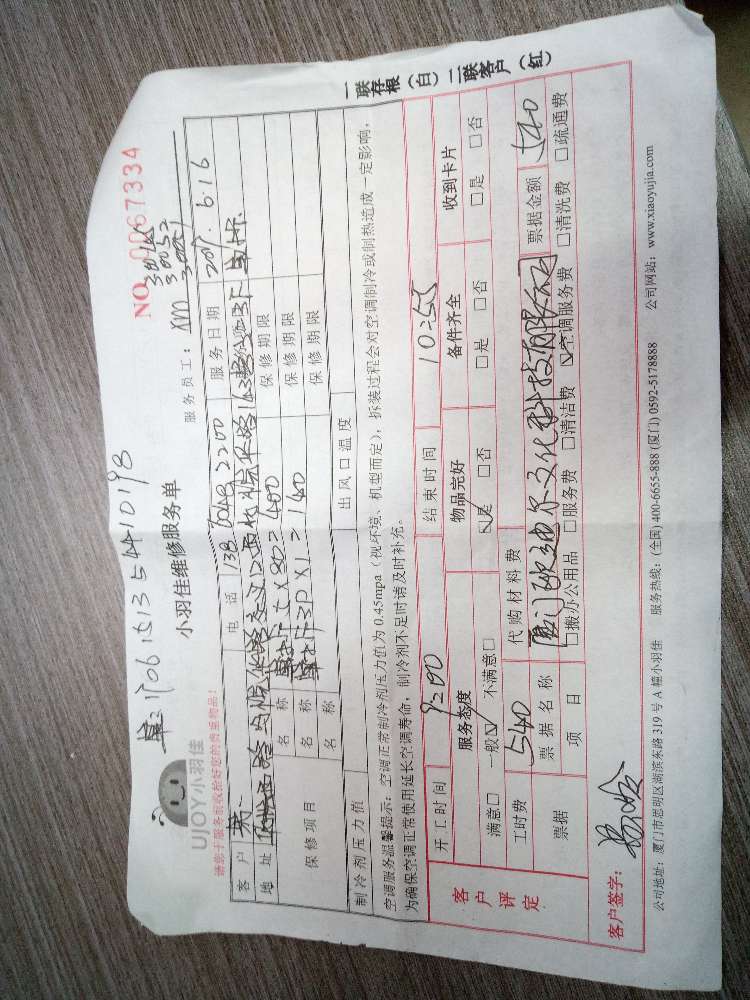 一联存根(白)二联客户(红)
NO.0067334
1706151354410198
UJOY小羽佳
小羽佳维修服务单
服务员工: XM
30052
请您于服务前收拾好您的贵重物品!
客户 电话 138 服务日期 2017.6.16
地址
保修项目 名称 ×80=400 保修期限
名称 3P×1=140 保修期限
名称 保修期限
制冷剂压力值 出风口温度
空调服务温馨提示:空调正常制冷剂压力值为0.45mpa(视环境、机型而定),拆装过程会对空调制冷或制热造成一定影响,
为确保空调正常使用延长空调寿命,制冷剂不足时请及时补充。
客户评定
开工时间 9:00 结束时间 10:55
服务态度 物品完好 备件齐全 收到卡片
满意□ 一般☑ 不满意□ ☑是 □否 □是 □否 □是 □否
工时费 540 代购材料费
票据 票据名称 厦门欧迪尔文化科技有限公司 票据金额 540
项目 □搬办公用品 □服务费 □清洁费 ☑空调服务费 □清洗费 □疏通费
客户签字:
公司地址:厦门市思明区湖滨东路319号A幢小羽佳 服务热线:(全国)400-6655-888 (厦门)0592-5178888 公司网站:www.xiaoyujia.com